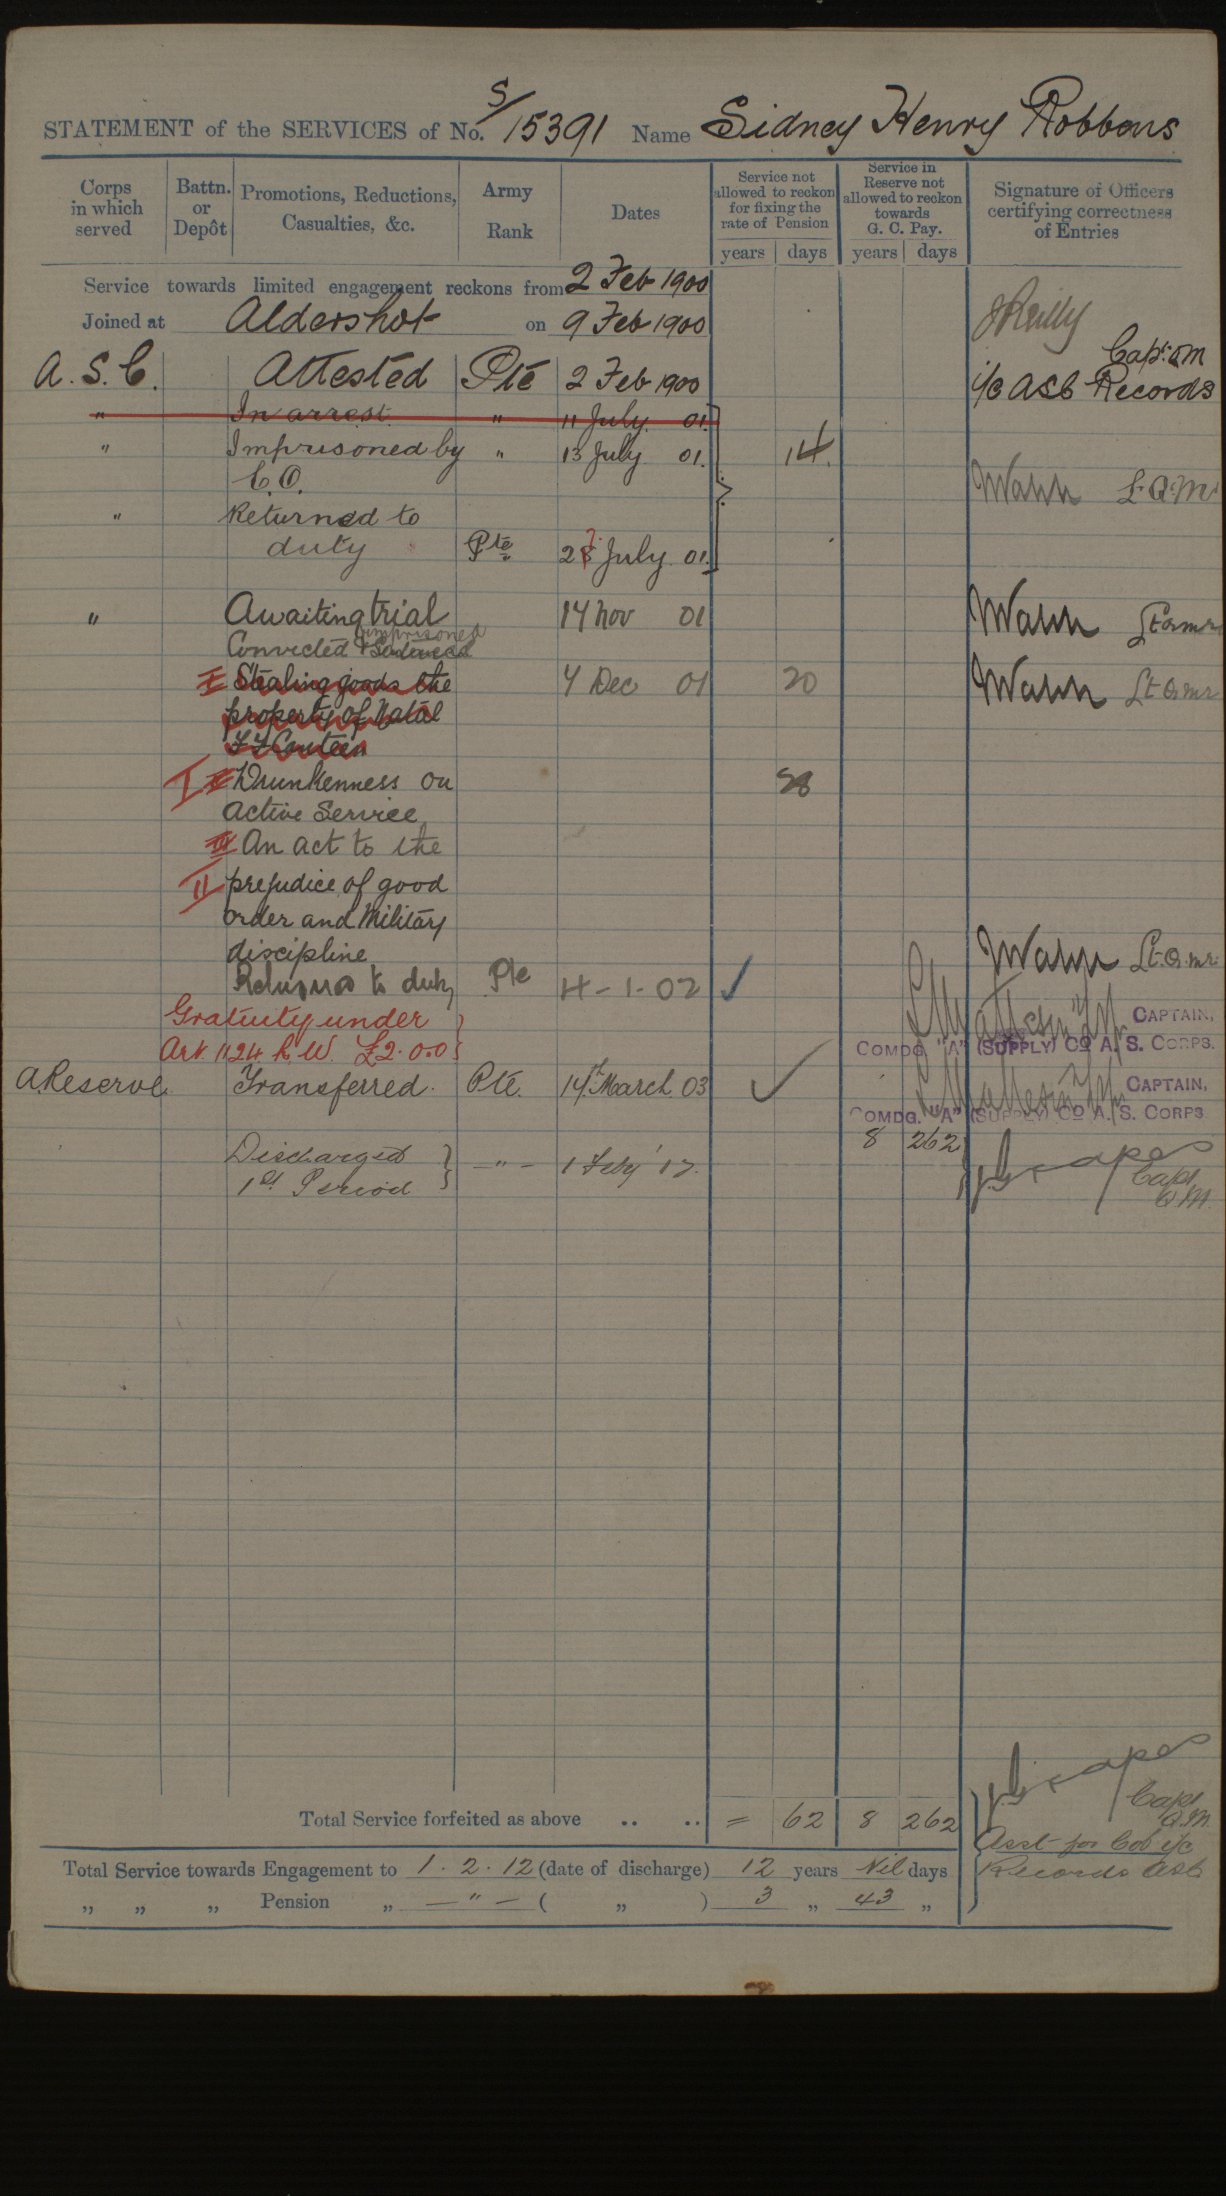 STATEMENT of the SERVICES of No. S/15391 Name Sidney Henry Robbens
Corps in which served
Battn. or Depôt
Promotions, Reductions, Casualties, &c.
Army Rank
Dates
Service not allowed to reckon for fixing the rate of Pension
years days
Service in Reserve not allowed to reckon towards G. C. Pay.
years days
Signature of Officers certifying correctness of Entries
Service towards limited engagement reckons from 2 Feb 1900
Joined at Aldershot on 9 Feb 1900
JReilly
Capt: QM
A. S. C. Attested Pte 2 Feb 1900 i/c ASC Records
" In arrest " 11 July 01.
" Imprisoned by " 13 July 01. 14.
C.O.
Walsh Lt Q.Mr
" Returned to
duty Pte 27 July 01.
" Awaiting trial 14 Nov 01 Walsh Lt Qmr
imprisoned
Convicted &
I Stealing goods the 4 Dec 01 20 Walsh Lt Qmr
property of Natal
F F Canteen
I II Drunkenness on 28
Active Service
III An act to the
II prejudice of good
order and Military
discipline Walsh Lt. Q.mr
Returned to duty Pte 4-1-02
Gratuity under CAPTAIN,
Art. 1124 R.W. £2.0.0 COMDG. "A" (SUPPLY) CO A. S. CORPS.
A.Reserve Transferred. Pte. 14th March 03 CAPTAIN,
COMDG. "A" (SUPPLY) CO A. S. CORPS
8 262
Discharged
1st Period — " — 1 Feby '12.
Capt
QM.
Total Service forfeited as above .. .. = 62 8 262
Capt
Q.M.
Asst for Col i/c
Records ASC
Total Service towards Engagement to 1.2.12 (date of discharge) 12 years Nil days
" " " Pension " — " — ( " ) 3 " 43 "